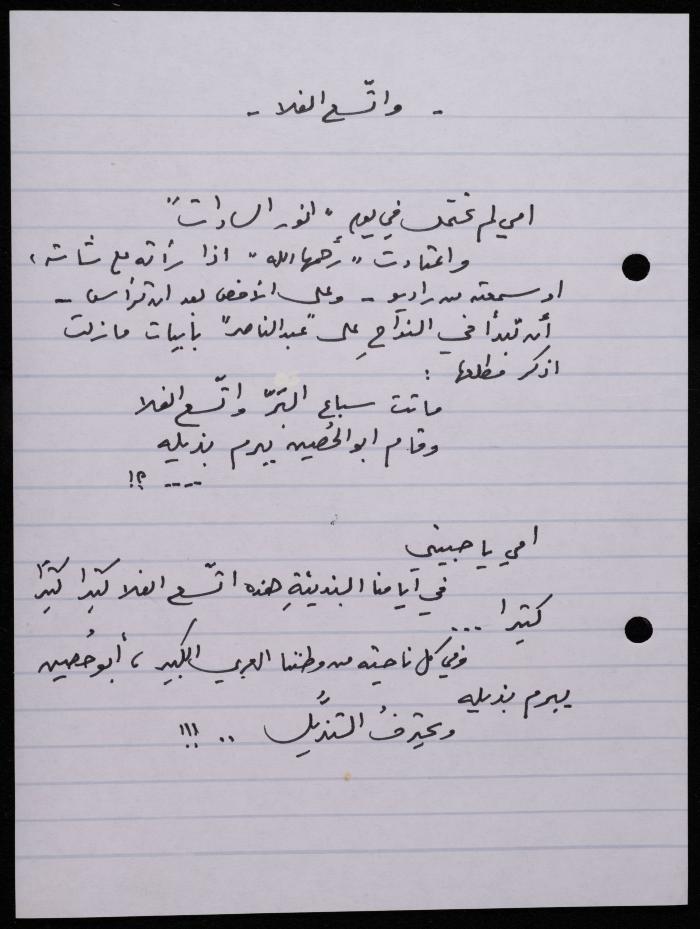 - واتّسع الفلا -
امي لم تحتمل في يوم "انور السادات"
واعتادت "رحمها الله" اذا رأته على شاشة،
او سمعته من راديو - وعلى الاخص بعد ان ترأس -
أن تبدأ في النواحِ على "عبد الناصر" بأبيات ما زلت
اذكر مطلعها :
ماتت سباع البَرّ واتّسع الفلا
وقام ابو الحُصين يبرم بذيله
.... ؟!
امي يا حبيبتي
في ايامنا البذيئةِ هذه اتّسع الفلا كثيرا كثيرًا
كثيرا ...
وفي كل ناحية من وطننا العربي الكبير، أبو حُصين
يبرم بذيله
ويحترفُ التذيُّل .. !!!